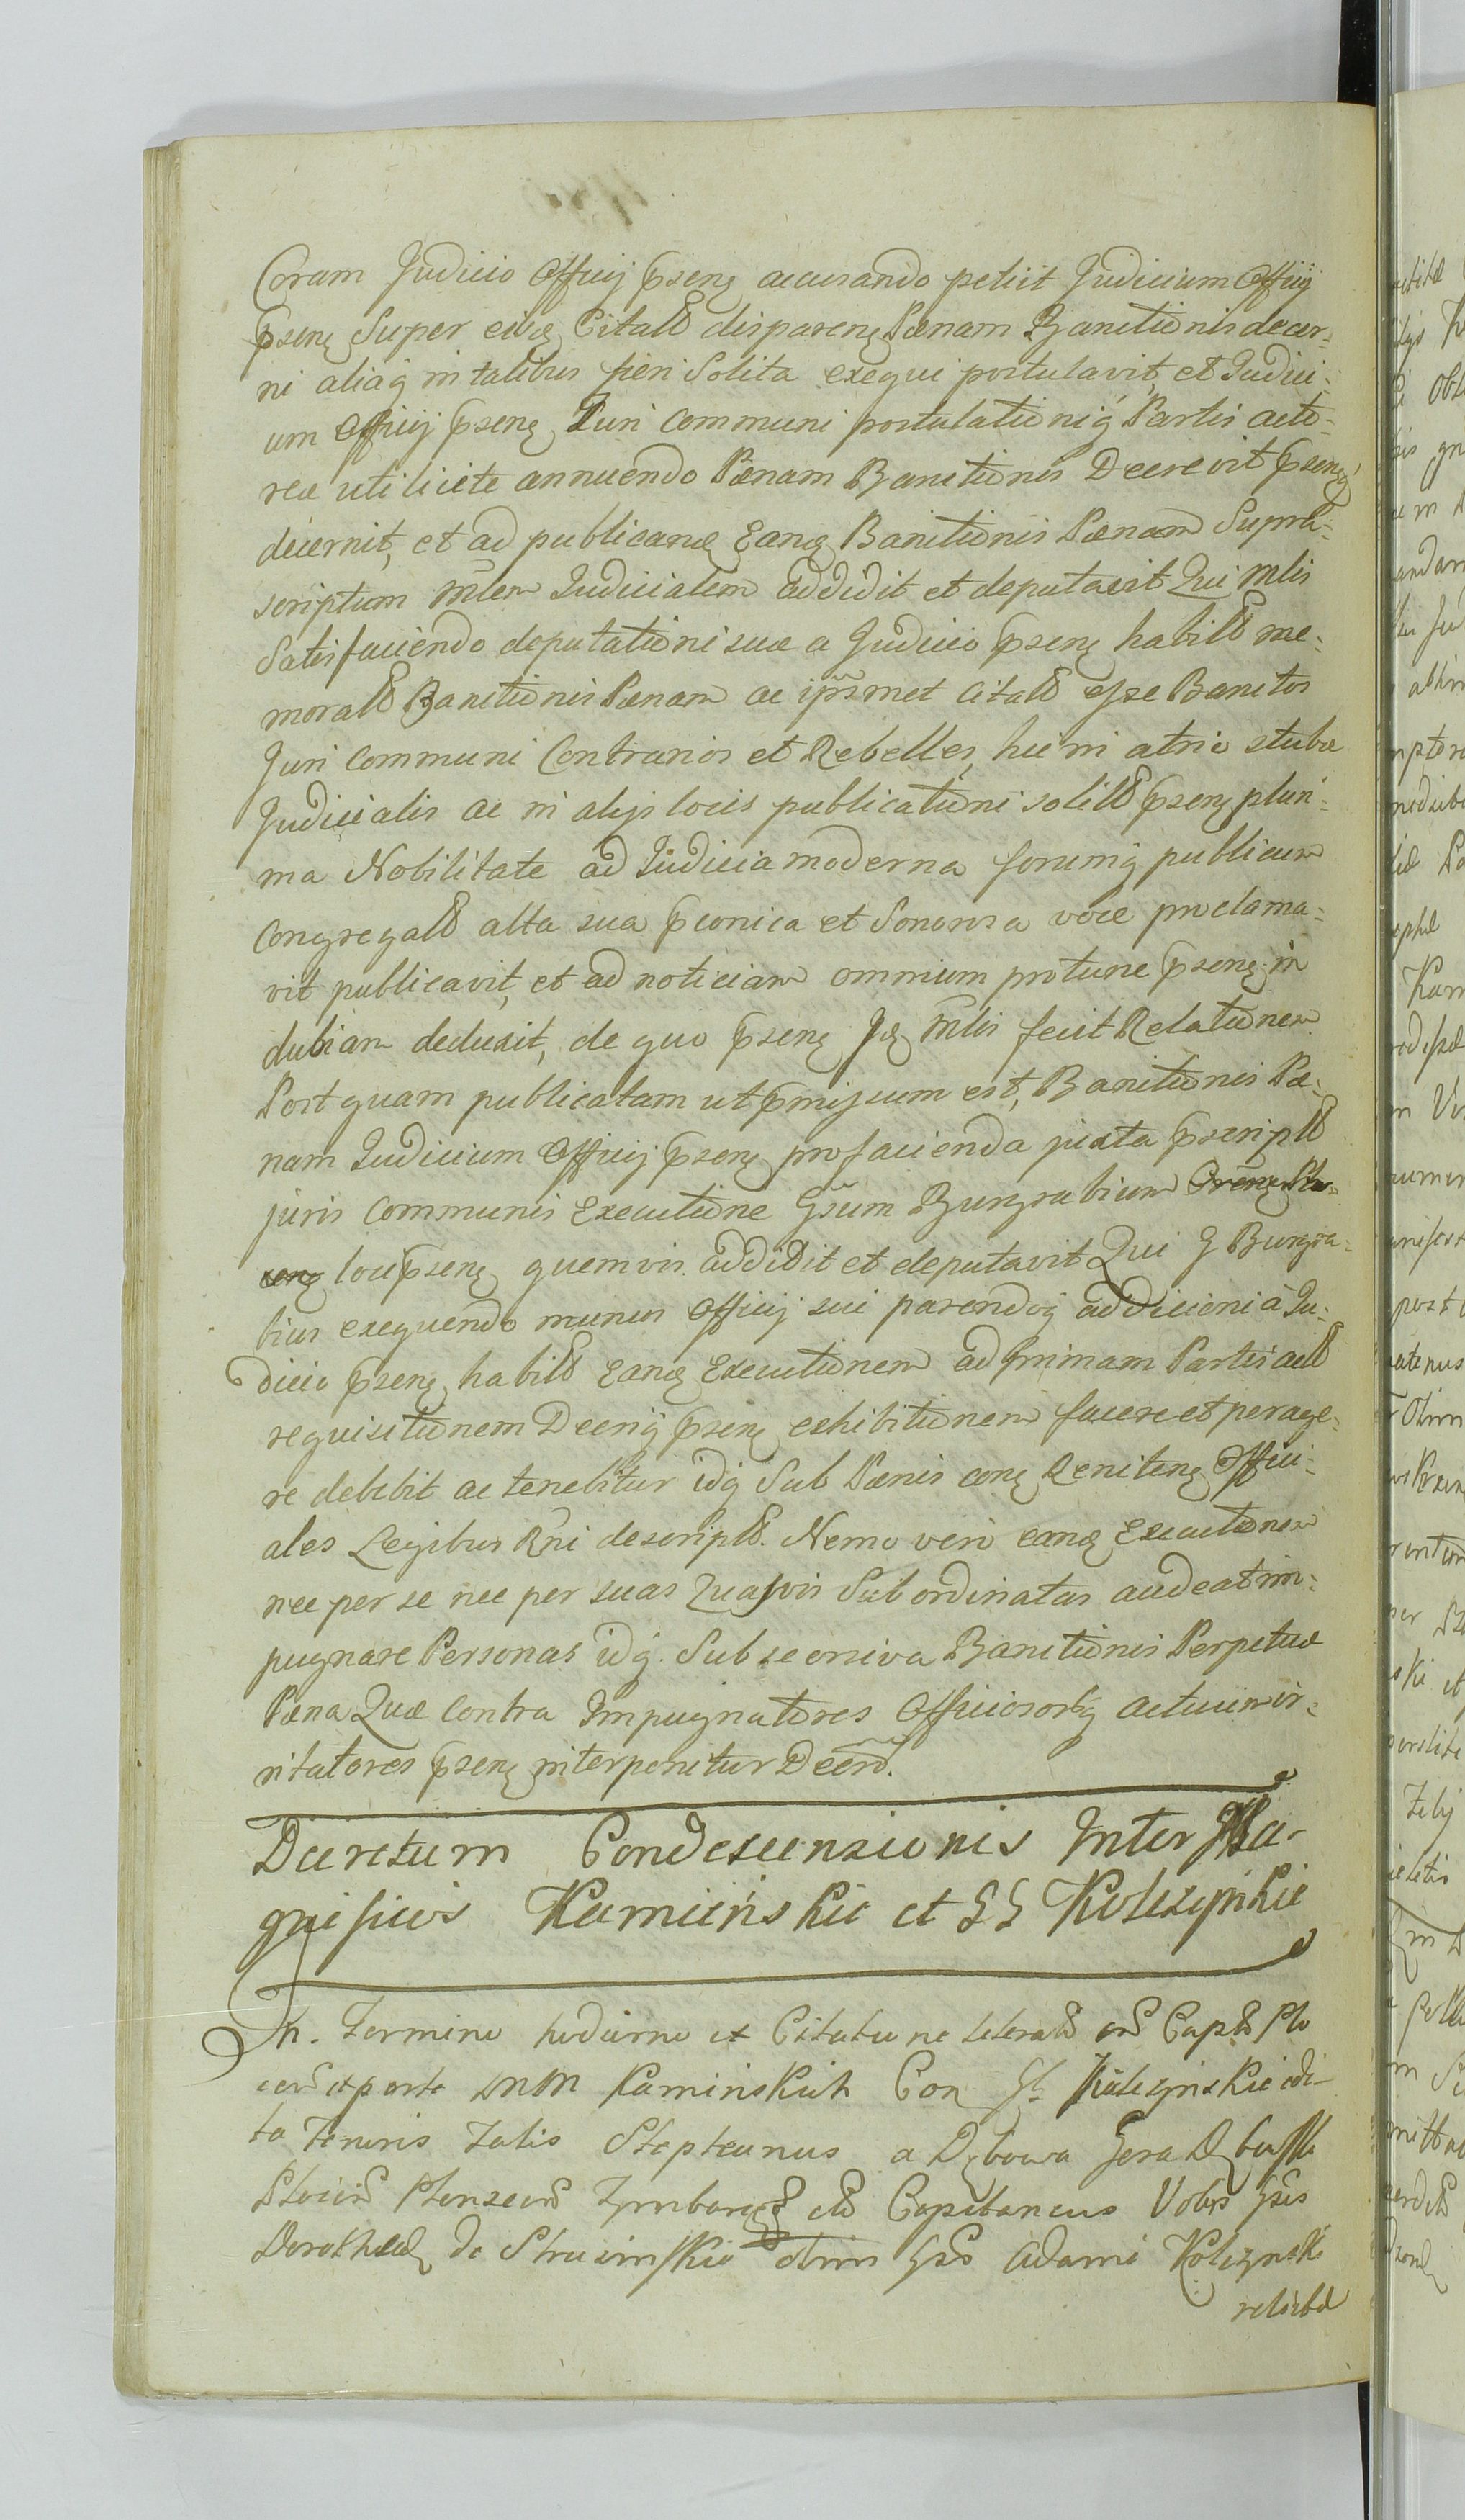 Coram Judicio Officij pseng accusando petiit Judicium Officij
pseng Super eisdē Citatis dispareng Pænam Banitionis decer-
ni aliaq in talibus fieri Solita exequi postulavit, et Judici-
um Officij pseng Juri communi postulationiq Partis acto-
reæ uti licite annuendo Pænam Banitionis Decrevit psenq
decernit, et ad publicand eand Banitionis Pænam Supra-
scriptum Mlem Judicialem addidit et deputavit Qui Mlis
Satisfaciendo deputationi suæ a Judicio pseng habitæ me-
moratæ Banitionis Pænam ac ipsosmet citatos esse Banitos
Juri communi Contrarios et Rebelles, hic in atrio stubæ
Judicialis ac in alijs locis publicationi solitis pseng pluri-
ma Nobilitate ad Judicia moderna forumq publicum
congregata alta sua præconica et Sonorosa voce proclama-
vit publicavit, et ad noticiam omnium protunc pseng in
dubiam deduxit, de quo pseng Id Mlis fecit Relationem
Post quam publicatam ut pmissum est, Banitionis Pæ-
nam Judicium Officij pseng pro facienda juxta pscripta
juris communis Executione Gsum Burgrabium
loci pseng quemvis addidit et deputavit Qui G Burgra-
bius exequendo munus Officij sui parendoq addicioni à Ju-
dicio pseng habitæ eand Executionem ad primam Partis actæ
requisitionem Decriq pseng exhibitionem facere et perage-
re debebit ac tenebitur idq Sub Pænis cong Reniteng Offici-
ales Legibus Rni descriptis. Nemo vero eand Executionem
nec per se nec per suas quasvis Subordinatas audeat im-
pugnare Personas idq. Sub secorsiva Banitionis Perpetuæ
Pæna Quæ contra Impugnatores Officiosorq actuum ir-
ritatores pseng interponitur Decro.
Decretum Condescensionis Inter Ma-
gnificos Kamieńskie et GG Kolczynskie
In Termino hodierno ex Citatione literali cris Captli Plo
cen ex parte MM Kaminskich Con GG Kolczynskie edi-
ta Tenoris Talis Stephanus a Dębowa Gora Dębowski
Plocen Plonscen etc Capitaneus Vobis Gsis
Dorotheæ de olim Gsi Adami Kolczynski
relictæ